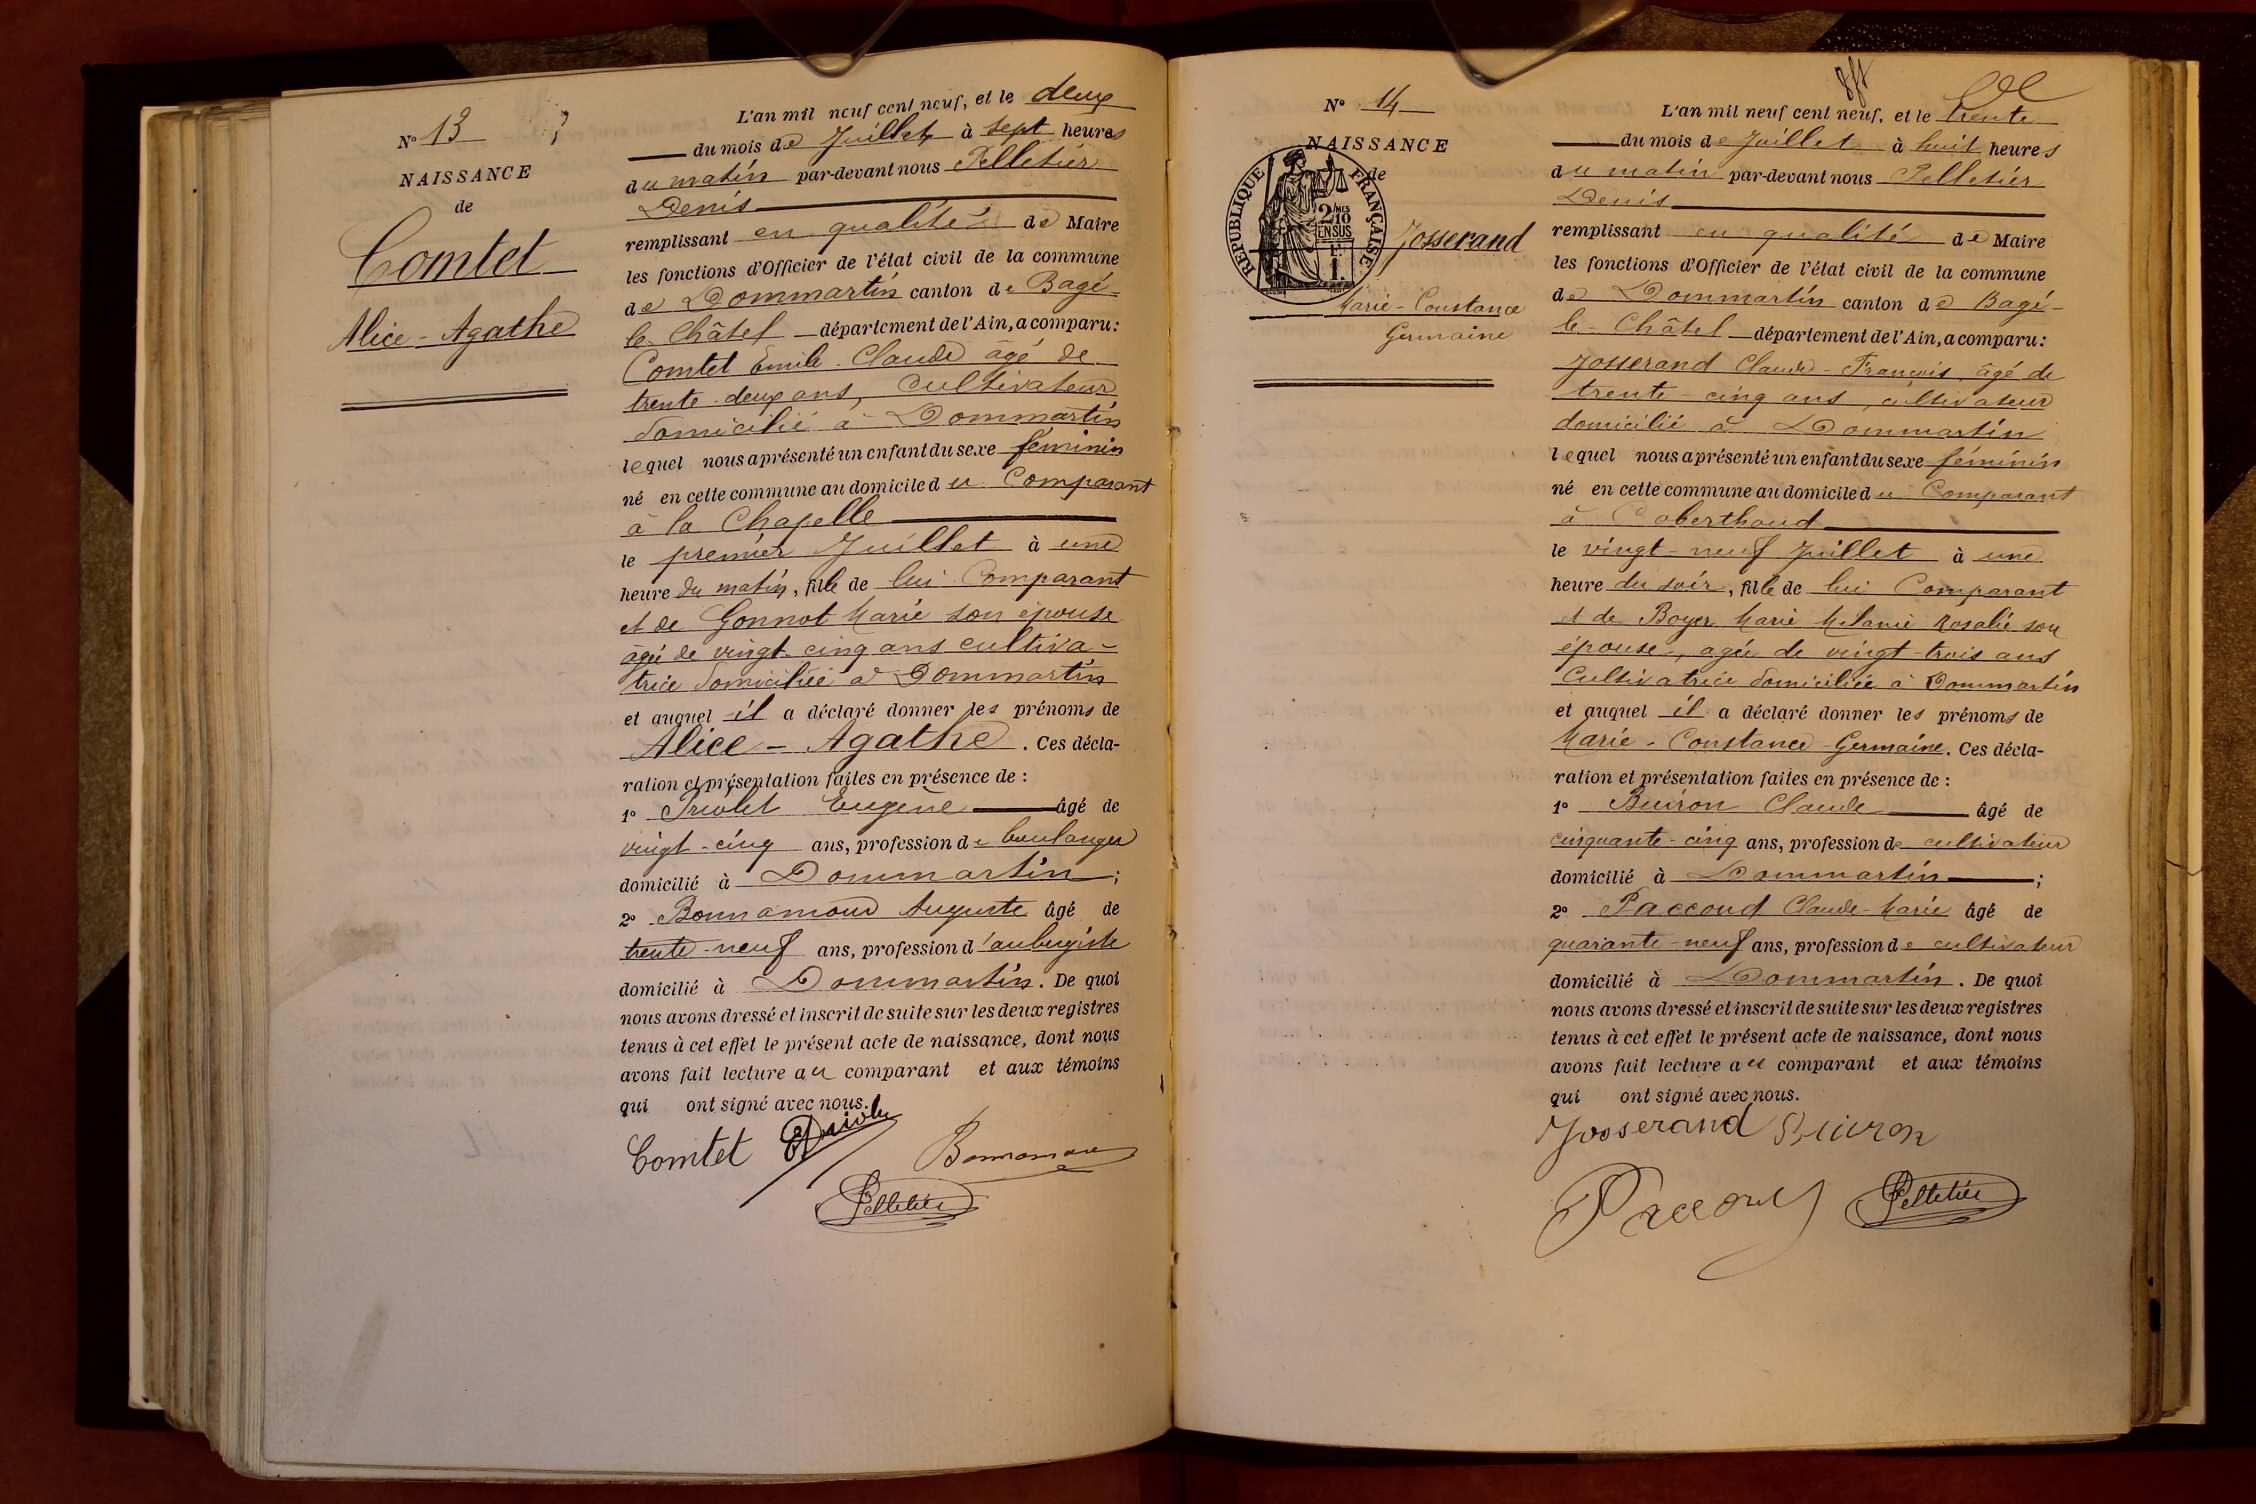 N° 13
NAISSANCE
de
Comtet
Alice - Agathe
L'an mil neuf cent neuf, et le deux
du mois de Juillet à sept heures
du matin par-devant nous Pelletier
Denis
remplissant en qualité de Maire
les fonctions d'Officier de l'état civil de la commune
de Dommartin canton de Bagé-
le-Châtel département de l'Ain, a comparu:
Comtet Emile Claude âgé de
trente-deux ans, cultivateur
domicilié à Dommartin
lequel nous a présenté un enfant du sexe féminin
né en cette commune au domicile du Comparant
à la Chapelle
le premier Juillet à une
heure du matin, fille de lui Comparant
et de Gonnot Marie son épouse
âgée de vingt-cinq ans cultiva-
trice domiciliée à Dommartin
et auquel il a déclaré donner les prénoms de
Alice - Agathe. Ces décla-
ration et présentation faites en présence de :
1° Triolet Eugène âgé de
vingt-cinq ans, profession de boulanger
domicilié à Dommartin ;
2° Bonnamour Auguste âgé de
trente-neuf ans, profession d'aubergiste
domicilié à Dommartin. De quoi
nous avons dressé et inscrit de suite sur les deux registres
tenus à cet effet le présent acte de naissance, dont nous
avons fait lecture au comparant et aux témoins
qui ont signé avec nous.
Comtet
Bonnamour
Pelletier
N° 14
NAISSANCE
de
RÉPUBLIQUE FRANÇAISE
2/10 EN SUS
Josserand
Marie - Constance
Germaine
L'an mil neuf cent neuf, et le trente
du mois de Juillet à huit heures
du matin par-devant nous Pelletier
Denis
remplissant en qualité de Maire
les fonctions d'Officier de l'état civil de la commune
de Dommartin canton de Bagé-
le-Châtel département de l'Ain, a comparu:
Josserand Claude-François, âgé de
trente-cinq ans, cultivateur
domicilié à Dommartin
lequel nous a présenté un enfant du sexe féminin
né en cette commune au domicile du Comparant
à Coberthoud
le vingt-neuf Juillet à une
heure du soir, fille de lui Comparant
et de Boyer Marie Mélanie Rosalie son
épouse, agée de vingt-trois ans
Cultivatrice domiciliée à Dommartin
et auquel il a déclaré donner les prénoms de
Marie - Constance - Germaine. Ces décla-
ration et présentation faites en présence de :
1° Buiron Claude âgé de
cinquante-cinq ans, profession de cultivateur
domicilié à Dommartin ;
2° Paccoud Claude-Marie âgé de
quarante-neuf ans, profession de cultivateur
domicilié à Dommartin. De quoi
nous avons dressé et inscrit de suite sur les deux registres
tenus à cet effet le présent acte de naissance, dont nous
avons fait lecture au comparant et aux témoins
qui ont signé avec nous.
Josserand Buiron
Paccoud Pelletier